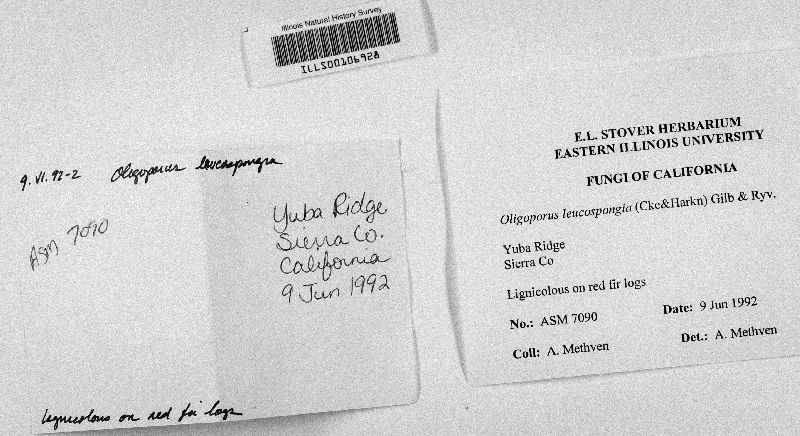 Illinois Natural History Survey
ILLS00106928
9.VI.92-2 Oligoporus leucospongia
ASM 7090
Yuba Ridge
Sierra Co.
California
9 Jun 1992
Lignicolous on red fir logs
E.L. STOVER HERBARIUM
EASTERN ILLINOIS UNIVERSITY
FUNGI OF CALIFORNIA
Oligoporus leucospongia (Cke&Harkn) Gilb & Ryv.
Yuba Ridge
Sierra Co
Lignicolous on red fir logs
No.: ASM 7090 Date: 9 Jun 1992
Coll: A. Methven Det.: A. Methven